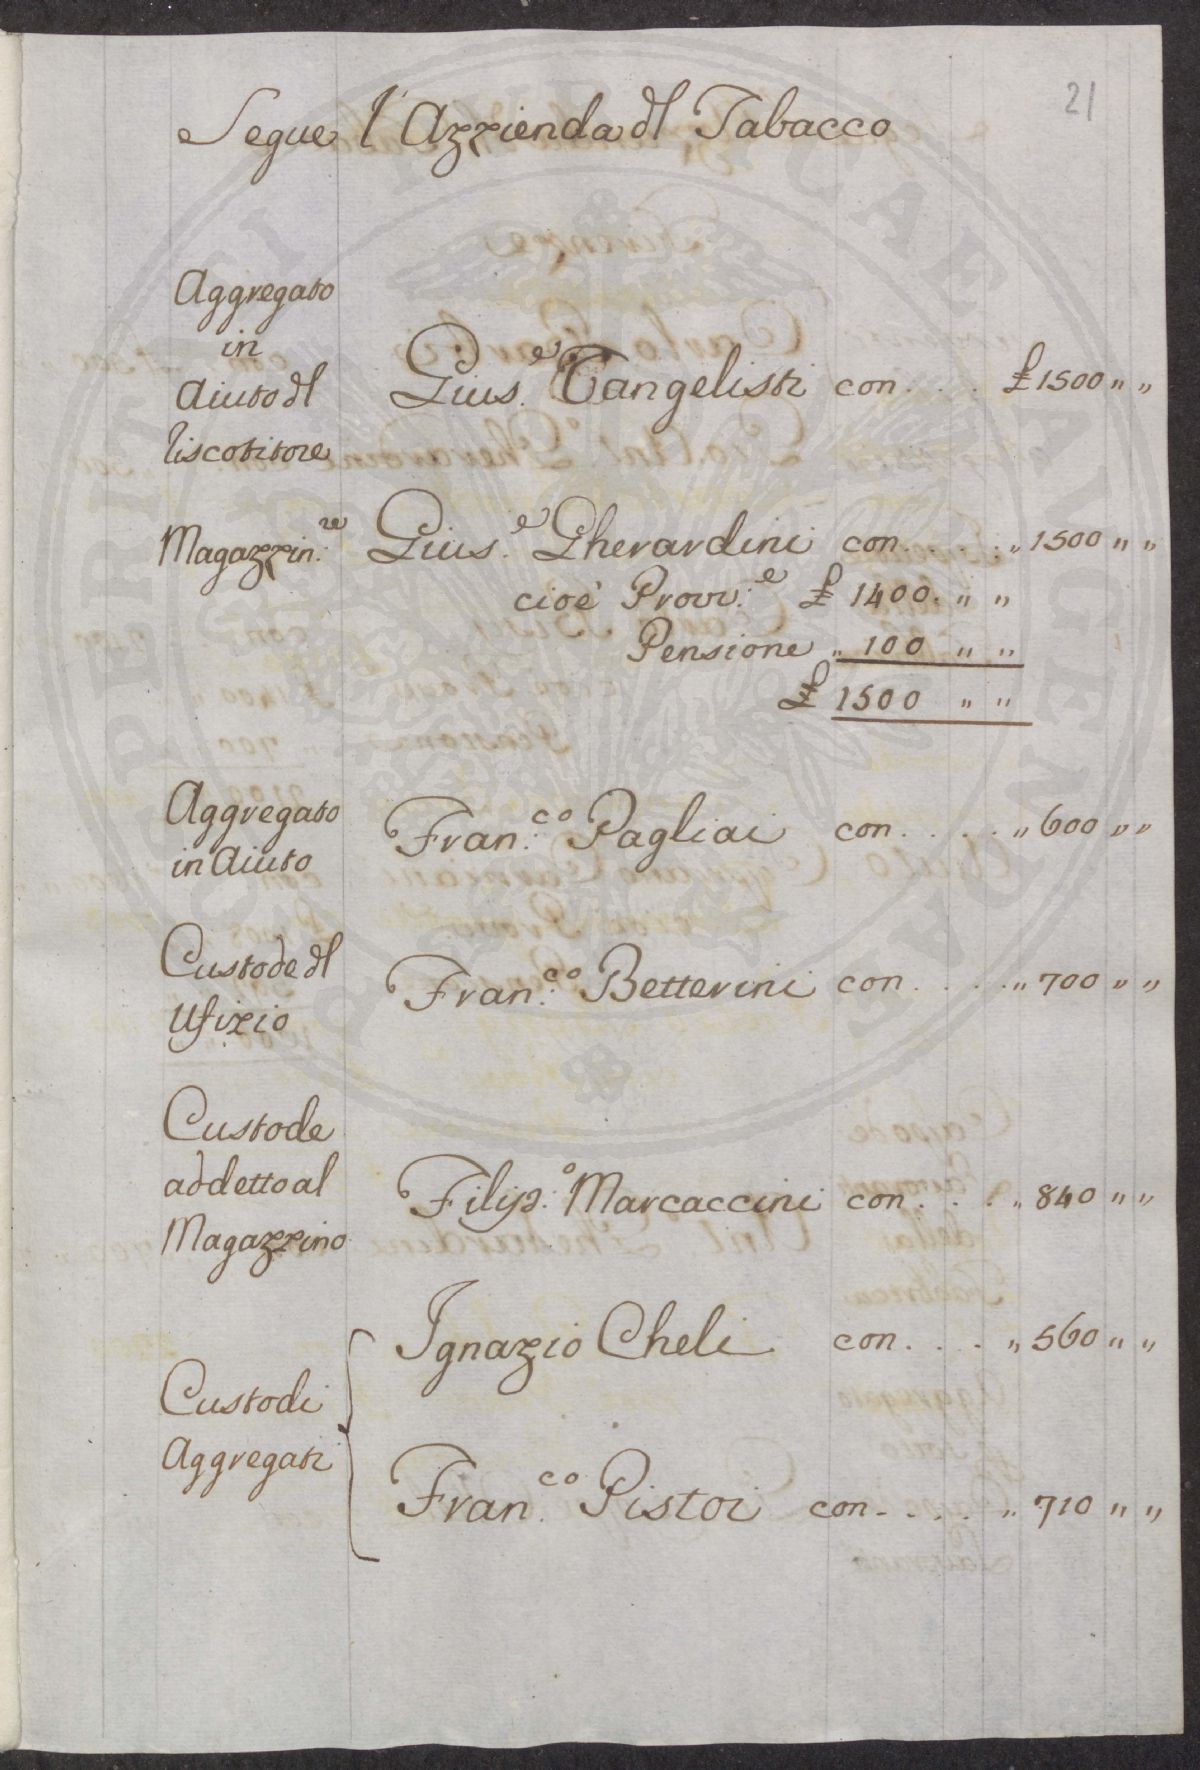 21
Segue l'Azzienda dl Tabacco
Aggregato
in
Aiuto dl
Riscotitore
Gius.e Vangelisti con.... £ 1500 " "
Magazzin.re Gius.e Gherardini con.... " 1500 " "
cioè Provv.e £ 1400. " "
Pensione " 100 " "
£ 1500 " "
Aggregato
in Aiuto
Fran.co Pagliai con.... " 600 " "
Custode dl
Ufizio
Fran.co Betterini con.... " 700 " "
Custode
addetto al
Magazzino
Filip.o Marcaccini con.... " 840 " "
Custodi
Aggregati
Ignazio Cheli con.... " 560 " "
Fran.co Pistoi con.... " 710 " "